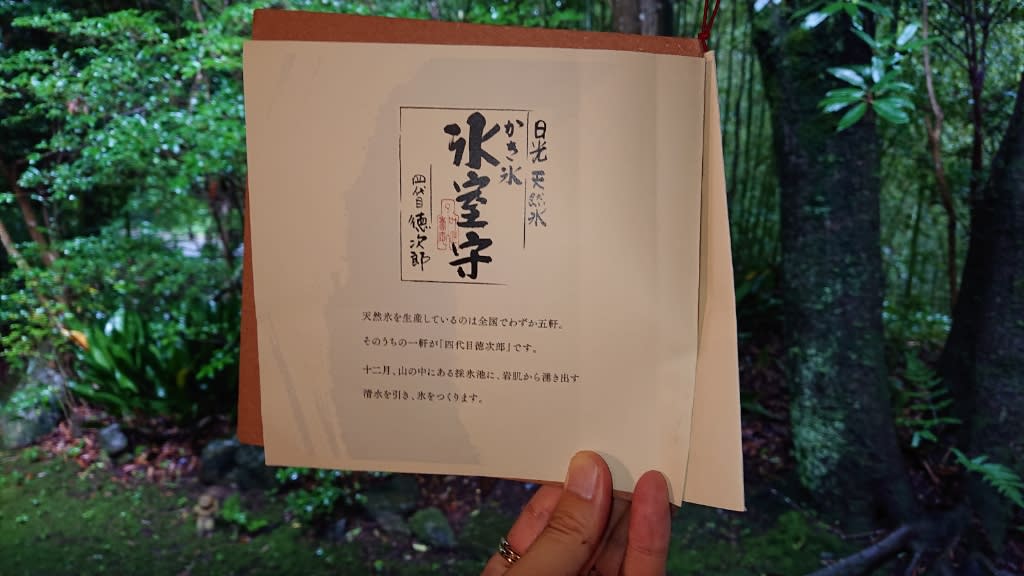 日光 天然氷
かき氷
氷室守
四代目 徳次郎
天然氷を生産しているのは全国でわずか五軒。
そのうちの一軒が「四代目徳次郎」です。
十二月、山の中にある採氷池に、岩肌から湧き出す
清水を引き、氷をつくります。